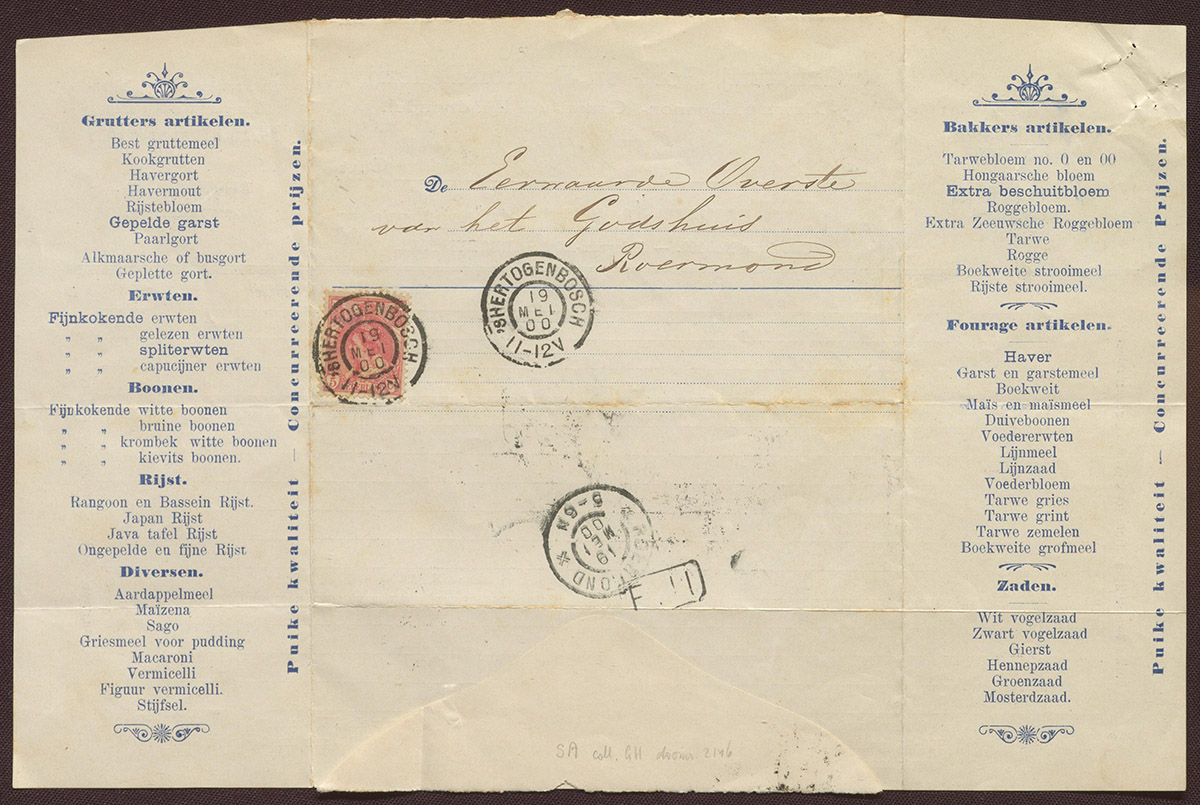 Grutters artikelen.
Best gruttemeel
Kookgrutten
Havergort
Havermout
Rijstebloem
Gepelde garst
Paarlgort
Alkmaarsche of busgort
Geplette gort.
Erwten.
Fijnkokende erwten
„ „ gelezen erwten
„ „ spliterwten
„ „ capucijner erwten
Boonen.
Fijnkokende witte boonen
„ „ bruine boonen
„ „ krombek witte boonen
„ „ kievits boonen.
Rijst.
Rangoon en Bassein Rijst.
Japan Rijst
Java tafel Rijst
Ongepelde en fijne Rijst
Diversen.
Aardappelmeel
Maïzena
Sago
Griesmeel voor pudding
Macaroni
Vermicelli
Figuur vermicelli.
Stijfsel.
Puike kwaliteit — Concurreerende prijzen.
De Eerwaarde Overste
van het Godshuis
Roermond
'SHERTOGENBOSCH
19
MEI
00
11-12V
'SHERTOGENBOSCH
19
MEI
00
11-12V
19
MEI
00
5-6N
SA coll. GH doosnr. 2146
Bakkers artikelen.
Tarwebloem no. 0 en 00
Hongaarsche bloem
Extra beschuitbloem
Roggebloem.
Extra Zeeuwsche Roggebloem
Tarwe
Rogge
Boekweite strooimeel
Rijste strooimeel.
Fourage artikelen.
Haver
Garst en garstemeel
Boekweit
Maïs en maïsmeel
Duiveboonen
Voedererwten
Lijnmeel
Lijnzaad
Voederbloem
Tarwe gries
Tarwe grint
Tarwe zemelen
Boekweite grofmeel
Zaden.
Wit vogelzaad
Zwart vogelzaad
Gierst
Hennepzaad
Groenzaad
Mosterdzaad.
Puike kwaliteit — Concurreerende Prijzen.